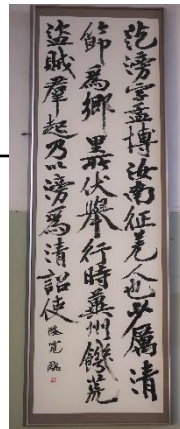 范滂字孟博汝南征羌人也少厲清
節爲鄉里所伏舉行時冀州饑荒
盜賊羣起乃以滂爲清詔使